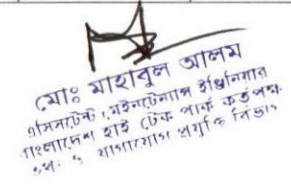 মোঃ মাহাবুল আলম
এসিসটেন্ট মেইনটেন্যান্স ইঞ্জিনিয়ার
বাংলাদেশ হাই টেক পার্ক কর্তৃপক্ষ
ও যোগাযোগ প্রযুক্তি বিভাগ